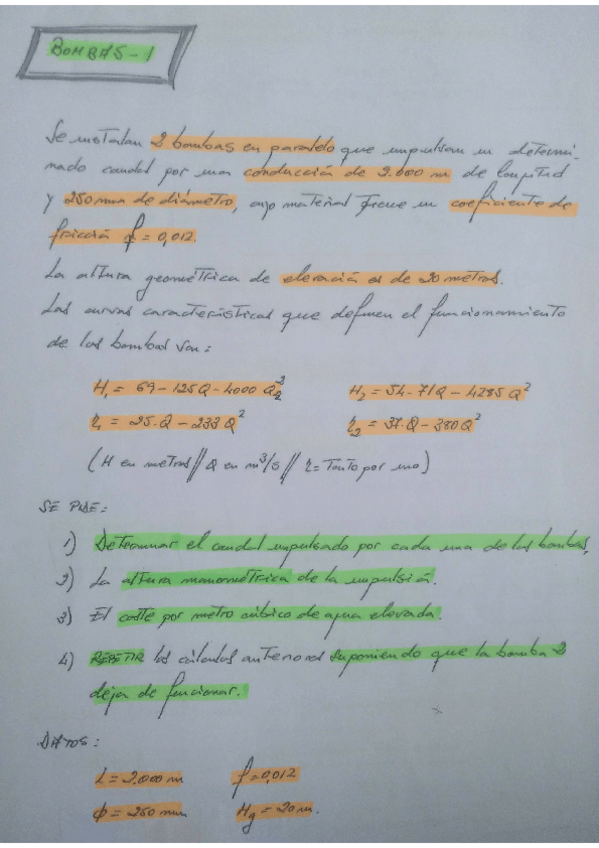 BOMBAS-1
Se instalan 2 bombas en paralelo que impulsan un determi-
nado caudal por una conducción de 2.000 m de longitud
y 250 mm de diámetro, cuyo material tiene un coeficiente de
fricción f = 0,012.
La altura geométrica de elevación es de 20 metros.
Las curvas características que definen el funcionamiento
de las bombas son:
H₁ = 69 - 125Q - 4000 Q² H₂ = 54 - 71Q - 4285 Q²
η₁ = 25·Q - 233 Q² η₂ = 37·Q - 380 Q²
(H en metros // Q en m³/s // η = Tanto por uno)
SE PIDE:
1) Determinar el caudal impulsado por cada una de las bombas,
2) La altura manométrica de la impulsión.
3) El coste por metro cúbico de agua elevada.
4) REPETIR los cálculos anteriores suponiendo que la bomba 2
deja de funcionar.
DATOS:
L = 2.000 m f = 0,012
Φ = 250 mm Hg = 20 m.